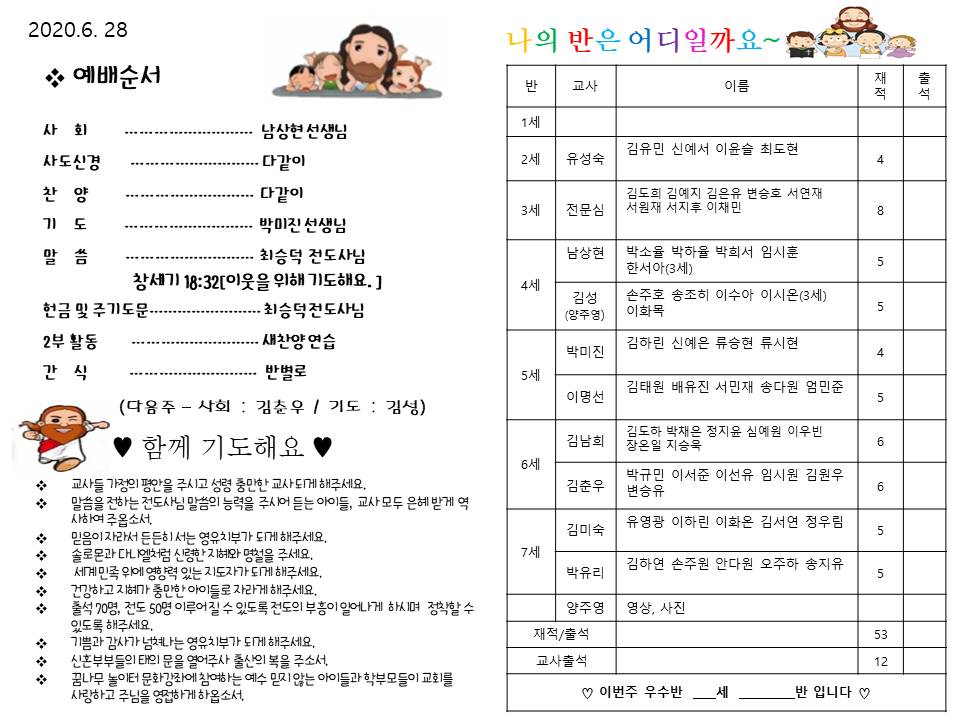 2020.6. 28
❖ 예배순서
사 회 ---------------------- 남상현선생님
사도신경 ---------------------- 다같이
찬 양 ---------------------- 다같이
기 도 ---------------------- 박미진선생님
말 씀 ---------------------- 최승덕 전도사님
창세기 18:32[이웃을 위해 기도해요. ]
헌금 및 주기도문---------------------- 최승덕전도사님
2부 활동 ---------------------- 새찬양연습
간 식 ---------------------- 반별로
(다음주 – 사회 : 김춘우 / 기도 : 김성)
♥ 함께 기도해요 ♥
❖ 교사들 가정의 평안을 주시고 성령 충만한 교사되게 해주세요.
❖ 말씀을 전하는 전도사님 말씀의 능력을 주시어 듣는 아이들, 교사 모두 은혜 받게 역
사하여 주옵소서.
❖ 믿음이 자라서 든든히 서는 영유치부가 되게 해주세요.
❖ 솔로몬과 다니엘처럼 신령한 지혜와 명철을 주세요.
❖ 세계 민족 위에 영향력 있는 지도자가 되게 해주세요.
❖ 건강하고 지혜가 충만한 아이들로 자라게 해주세요.
❖ 출석 70명, 전도 50명 이루어질 수 있도록 전도의 부흥이 일어나게 하시며 정착할 수
있도록 해주세요.
❖ 기쁨과 감사가 넘쳐나는 영유치부가 되게 해주세요.
❖ 신혼부부들의 태의 문을 열어주사 출산의 복을 주소서.
❖ 꿈나무 놀이터 문화강좌에 참여하는 예수 믿지 않는 아이들과 학부모들이 교회를
사랑하고 주님을 영접하게 하옵소서.
나의 반은 어디일까요~
반 교사 이름 재적 출석
1세
2세 유성숙 김유민 신예서 이윤슬 최도현 4
3세 전문심 김도희 김예지 김은유 변승호 서연재
서원재 서지후 이채민 8
4세 남상현 박소율 박하율 박희서 임시훈
한서아(3세) 5
김성
(양주영) 손주호 송조히 이수아 이시온(3세)
이화목 5
5세 박미진 김하린 신예은 류승현 류시현 4
이명선 김태원 배유진 서민재 송다원 엄민준 5
6세 김남희 김도하 박채은 정지윤 심예원 이우빈
장온일 지승욱 6
김춘우 박규민 이서준 이선유 임시원 김원우
변승유 6
7세 김미숙 유영광 이하린 이화온 김서연 정우림 5
박유리 김하연 손주원 안다원 오주하 송지유 5
양주영 영상, 사진
재적/출석 53
교사출석 12
♡ 이번주 우수반 ___세 ________반 입니다 ♡